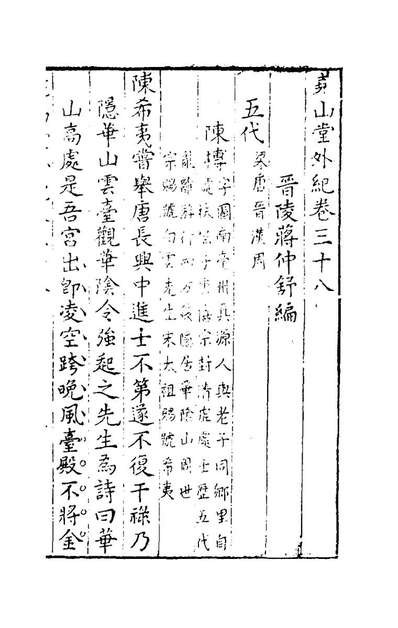 堯山堂外紀卷三十八
晉陵蔣仲舒編
五代 梁唐晉漢周
陳摶 字圖南亳州真源人與老子同鄉里自
號扶搖子唐僖宗封清虛處士歷五代
隱居華陰山周世
宗賜號白雲先生宋太祖賜號希夷
陳希夷嘗舉唐長興中進士不第遂不復干祿乃
隱華山雲臺觀華陰令強起之先生為詩曰華
山高處是吾宮出即凌空跨晚風臺殿不將金